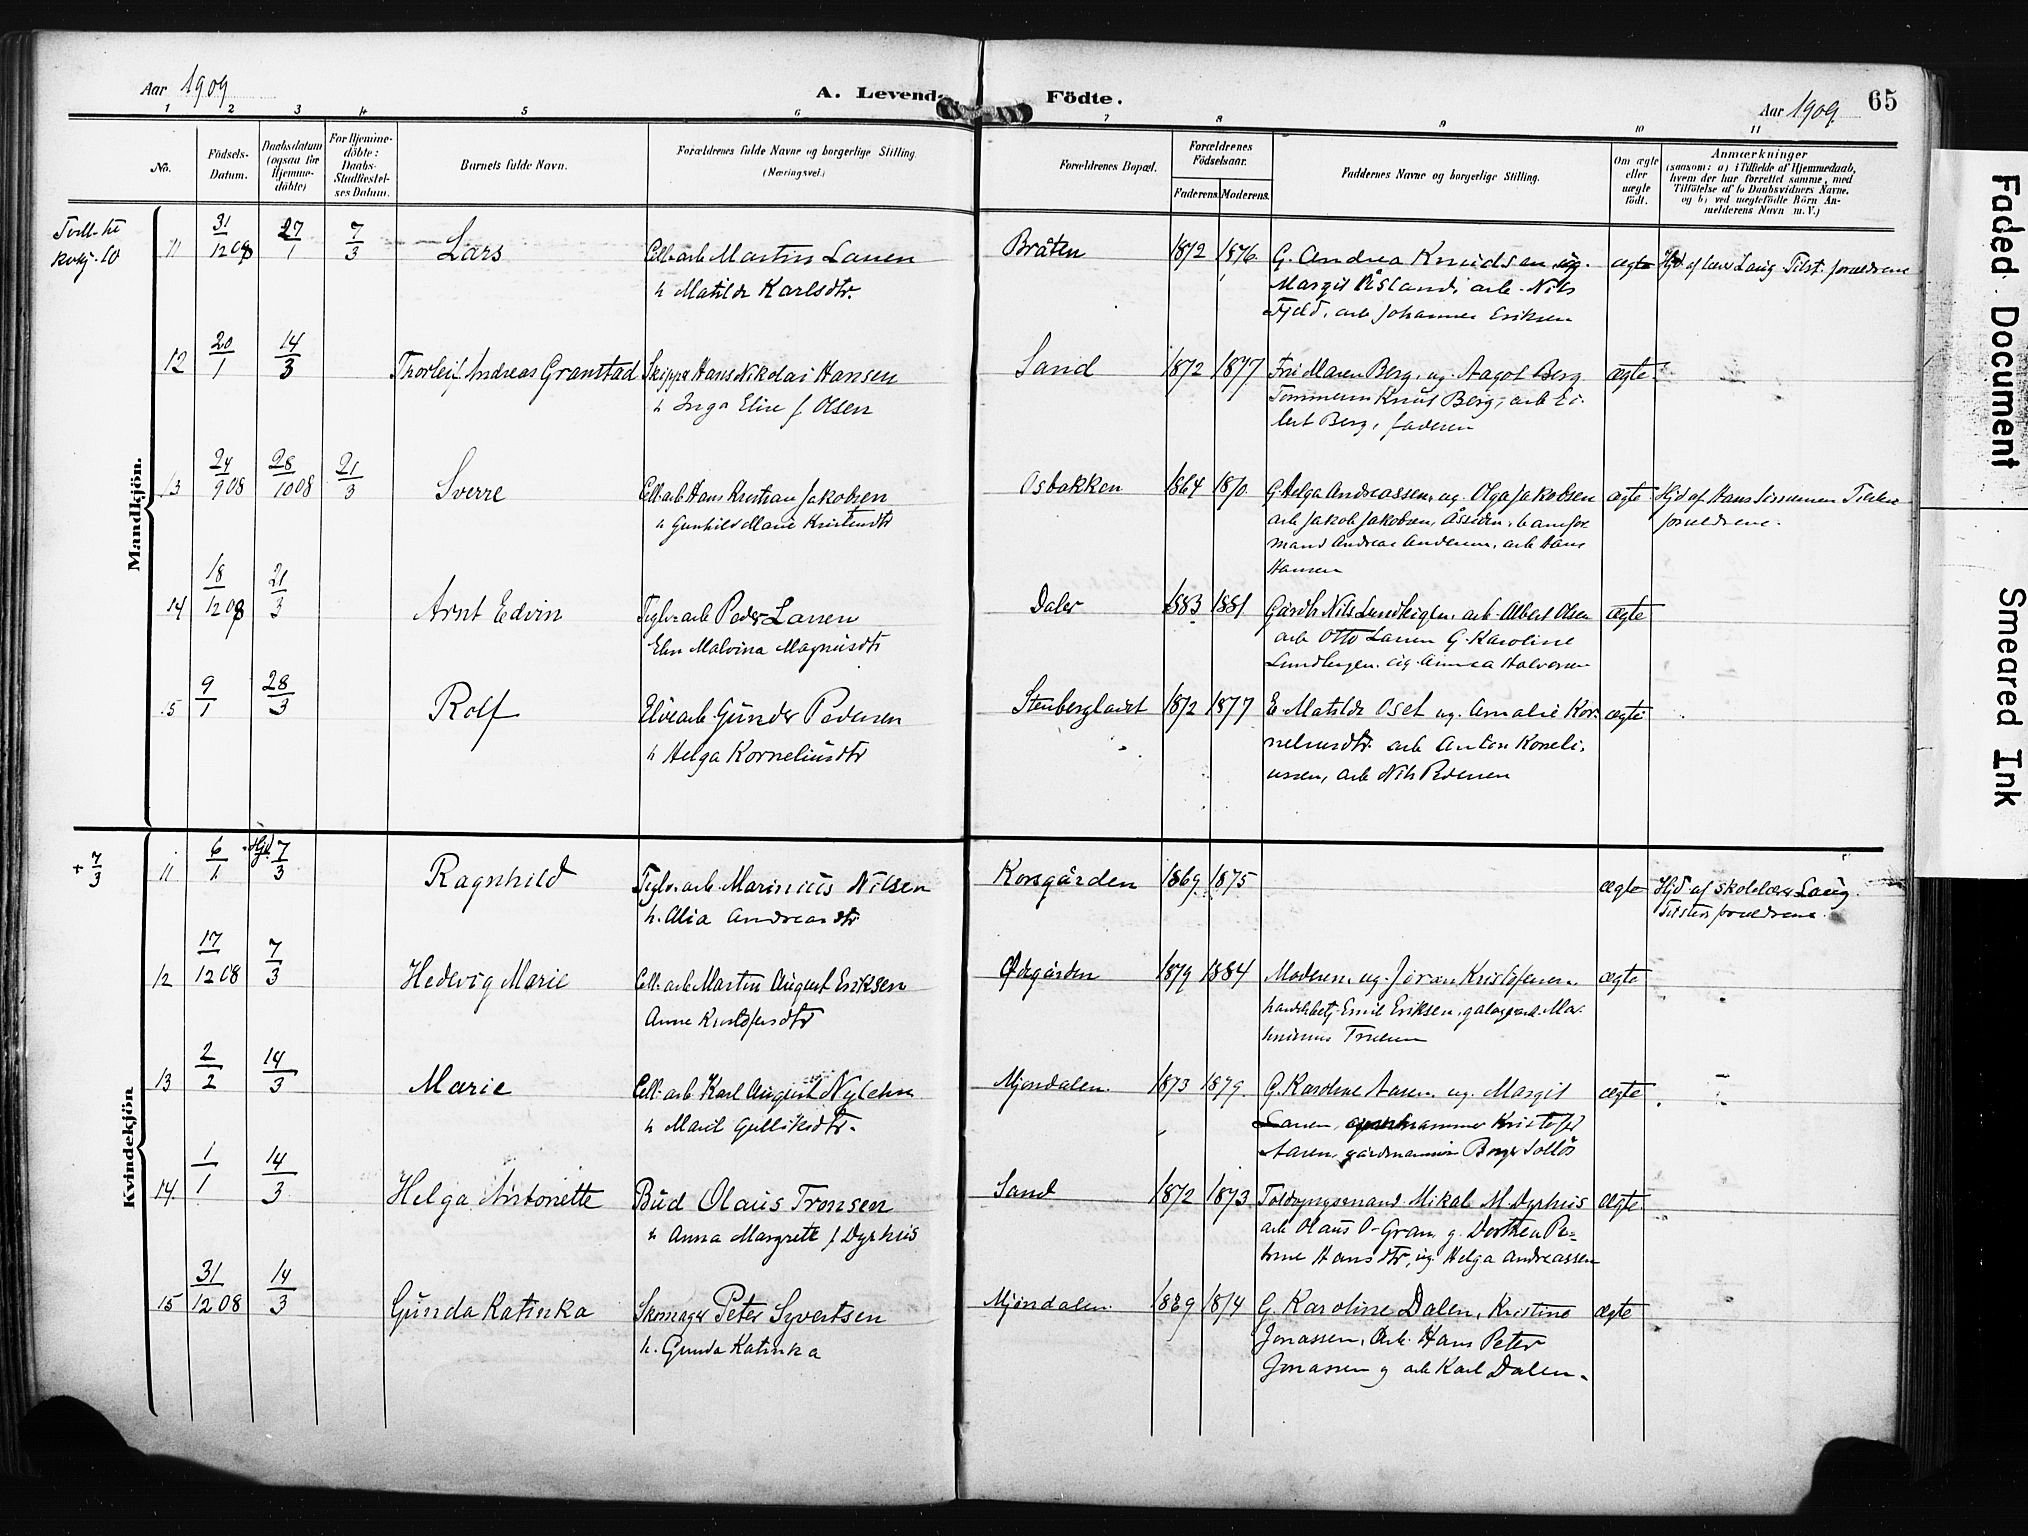 Aar 1909
A. Levende Födte.
Aar 1909.
65
1 2 3 4 5 6 7 8 9 10 11
No.
Födsels-
Datum.
Daabsdatum
(ogsaa for
Hjemme-
döbte)
For Hjemme-
döbte:
Daabs-
Stadfæstel-
ses Datum.
Barnets fulde Navn.
Forældrenes fulde Navne og borgerlige Stilling
(Næringsvei.)
Forældrenes Bopæl.
Forældrenes
Födselsaar.
Faderens. Moderens.
Faddernes Navne og borgerlige Stilling.
Om ægte
eller
uægte
födt.
Anmærkninger
(saasom: a) i Tilfælde af Hjemmedaab,
hvem der har forrettet samme, med
Tilföielse af to Daabsvidners Navne,
og b) ved uægtefödte Börn An-
melderens Navn m. V.)
Mandkjön.
11 31/12 08 27/1 7/3 Lars
Cell. arb Martin Larsen
h Matilde Karlsdtr.
Bråten 1872 1876
G. Andrea Knudsen ug.
Margit Åsland, arb. Nils
Fjeld, arb Johannes Eriksen
ægte
Hjd af lærer Laug Tilst. forældrene
12 20/1 14/3 Thorleif Andreas Granstad
Skipper Hans Nikolai Hansen
h Inga Eline f Olsen
Sand 1872 1877
Fru Maren Berg, ug. Aagot Berg
Tömmerm Knut Berg, arb Ei-
lert Berg, faderen
ægte
13 24/9 08 28/10 08 21/3 Sverre
Cell arb Hans Kristian Jakobsen
h Gunhild Marie Kristensdtr
Osbakken 1864 1870
G Helga Andreassen, ug. Olga Jakobsen
arb Jakob Jakobsen, Åssiden, banefor
mand Andreas Andersen, arb Hans
Hansen
ægte
Hjd af Hans
forældrene.
14 18/12 08 21/3 Arnt Edvin
Teglv. arb Peder Larsen
Elen Malvina Magnusdtr
Daler 1883 1881
Gårdb Nils Lundteigen, arb Albert Olsen
arb Otto Larsen G. Karoline
ug. Annea Halvorsen
ægte
15 9/1 28/3 Rolf
Elvearb. Gunder Pedersen
h Helga Korneliusdtr
Stenbergladet 1872 1877
E. Matilde Oset ug. Amalie Kor-
neliusdtr. arb Anton Korneli-
ussen, arb Nils Pedersen
ægte
Kvindekjön
+ 7/3
11 6/1 Hjd. 7/3 Ragnhild
Teglv. arb. Marinius Nilsen
h. Alia Andreasdtr
Korsgården 1869 1875
ægte
Hjd af skolelærer Laug.
Tilsten forældrene.
12 17/12 08 7/3 Hedevig Marie
Cell. arb Martin August Eriksen
Anne Kristofersdtr
Ødegården 1879 1884
Moderen, ug. Jöran Kristofersen.
handelsbetj. Emil Eriksen,
ægte
13 2/2 14/3 Marie
Cell. arb Karl August Nylehn
h Marit Gulliksdtr.
Mjøndalen. 1873 1879.
G. Karoline Aasen, ug. Margit
Larsen, Kristofer
Aasen, gårdmannsøn Borger Solløs
ægte
14 1/1 14/3 Helga Antonette
Bud Olaus Tronsen
h Anna Margrete f Dyrhus
Sand 1872 1873
Toldopsynsmand Mikal M. Dyrhus
arb Olaus O. Gran, g. Dorthea Pe-
trine Hansdtr, ug. Helga Andreassen
ægte
15 31/12 08 14/3 Gunda Katinka
Skomager Peter Syvertsen
h. Gunda Katinka
Mjøndalen. 1869 1874
G. Karoline Dalen, Kristine
Jonassen, Arb. Hans Peter
Jonassen g arb Karl Dalen.
ægte
Faded Document
Smeared Ink